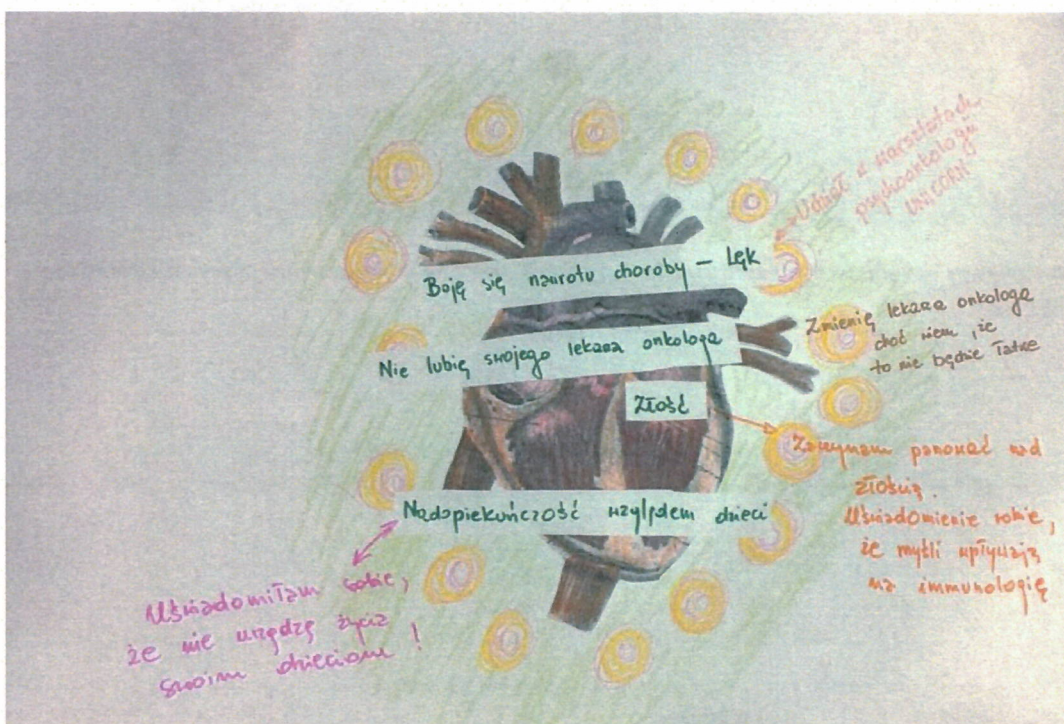 Udział w warsztatach
psychoonkologii
UNICORN
Boję się nawrotu choroby – Lęk
Zmienię lekarza onkologa
choć wiem, że
to nie będzie łatwe
Nie lubię swojego lekarza onkologa
Złość
Zaczynam panować nad
złością.
Uświadomienie sobie,
że myśli wpływają
na immunologię
Nadopiekuńczość względem dzieci
Uświadomiłam sobie,
że nie urządzę życia
swoim dzieciom!